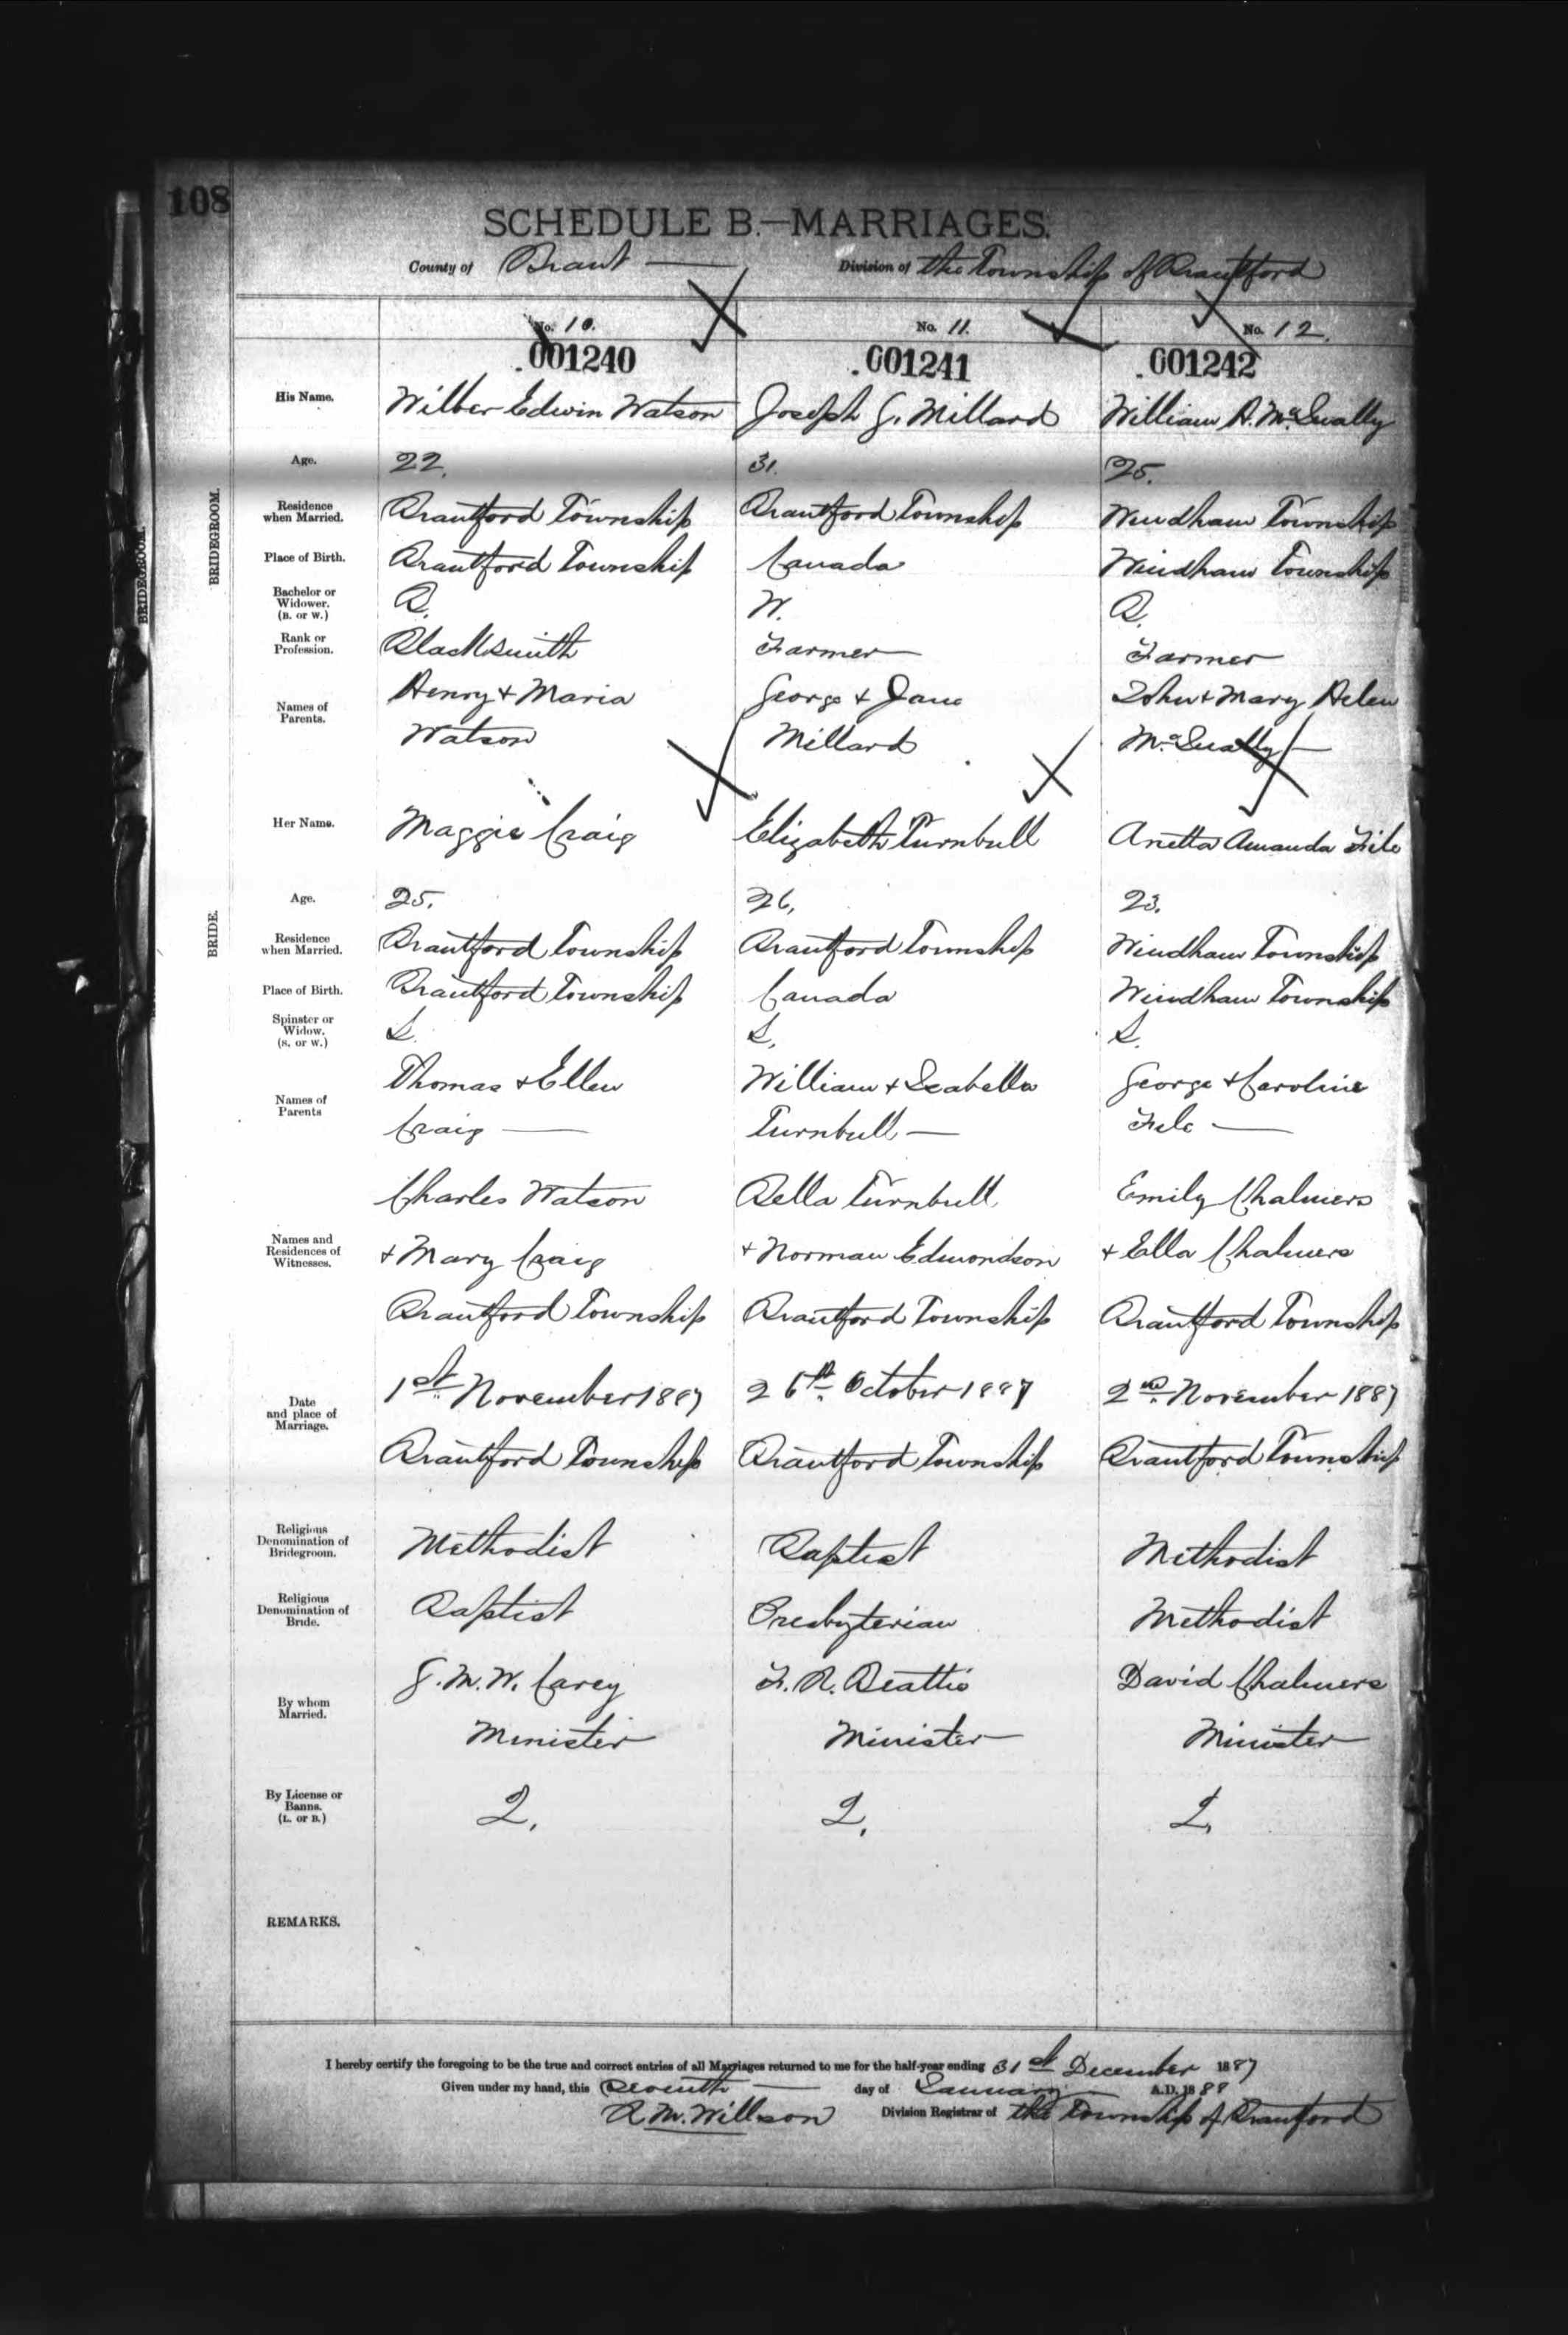 108
SCHEDULE B.—MARRIAGES.
County of Brant — Division of the Township of Brantford
No. 10. No. 11. No. 12.
001240 001241 001242
BRIDEGROOM.
BRIDEGROOM.
His Name. Wilber Edwin Watson Joseph G. Millard William H.
Age. 22. 31. 25.
Residence when Married. Brantford Township Brantford Township Windham Township
Place of Birth. Brantford Township Canada Windham Township
Bachelor or Widower. (B. or W.) B. W. B.
Rank or Profession. Blacksmith Farmer Farmer
Names of Parents. Henry + Maria George + Jane John + Mary Helen
Watson Millard
BRIDE.
Her Name. Maggie Craig Elizabeth Turnbull Aretta Amanda File
Age. 25. 26. 23.
Residence when Married. Brantford Township Brantford Township Windham Township
Place of Birth. Brantford Township Canada Windham Township
Spinster or Widow. (S. or W.) S. S. S.
Names of Parents Thomas + Ellen William + Isabella George + Caroline
Craig — Turnbull — File —
Names and Residences of Witnesses. Charles Watson Bella Turnbull Emily Chalmers
+ Mary Craig + Norman Edmondson + Ella Chalmers
Brantford Township Brantford Township Brantford Township
Date and place of Marriage. 1st November 1887 26th October 1887 2nd November 1887
Brantford Township Brantford Township Brantford Township
Religious Denomination of Bridegroom. Methodist Baptist Methodist
Religious Denomination of Bride. Baptist Presbyterian Methodist
By whom Married. G. M. W. Carey F. R. Beattie David Chalmers
Minister Minister Minister
By License or Banns. (L. or B.) L. L. L.
REMARKS.
I hereby certify the foregoing to be the true and correct entries of all Marriages returned to me for the half-year ending 31st December 1887
Given under my hand, this Seventh — day of January A.D. 1888
R M. Willson Division Registrar of the Township of Brantford